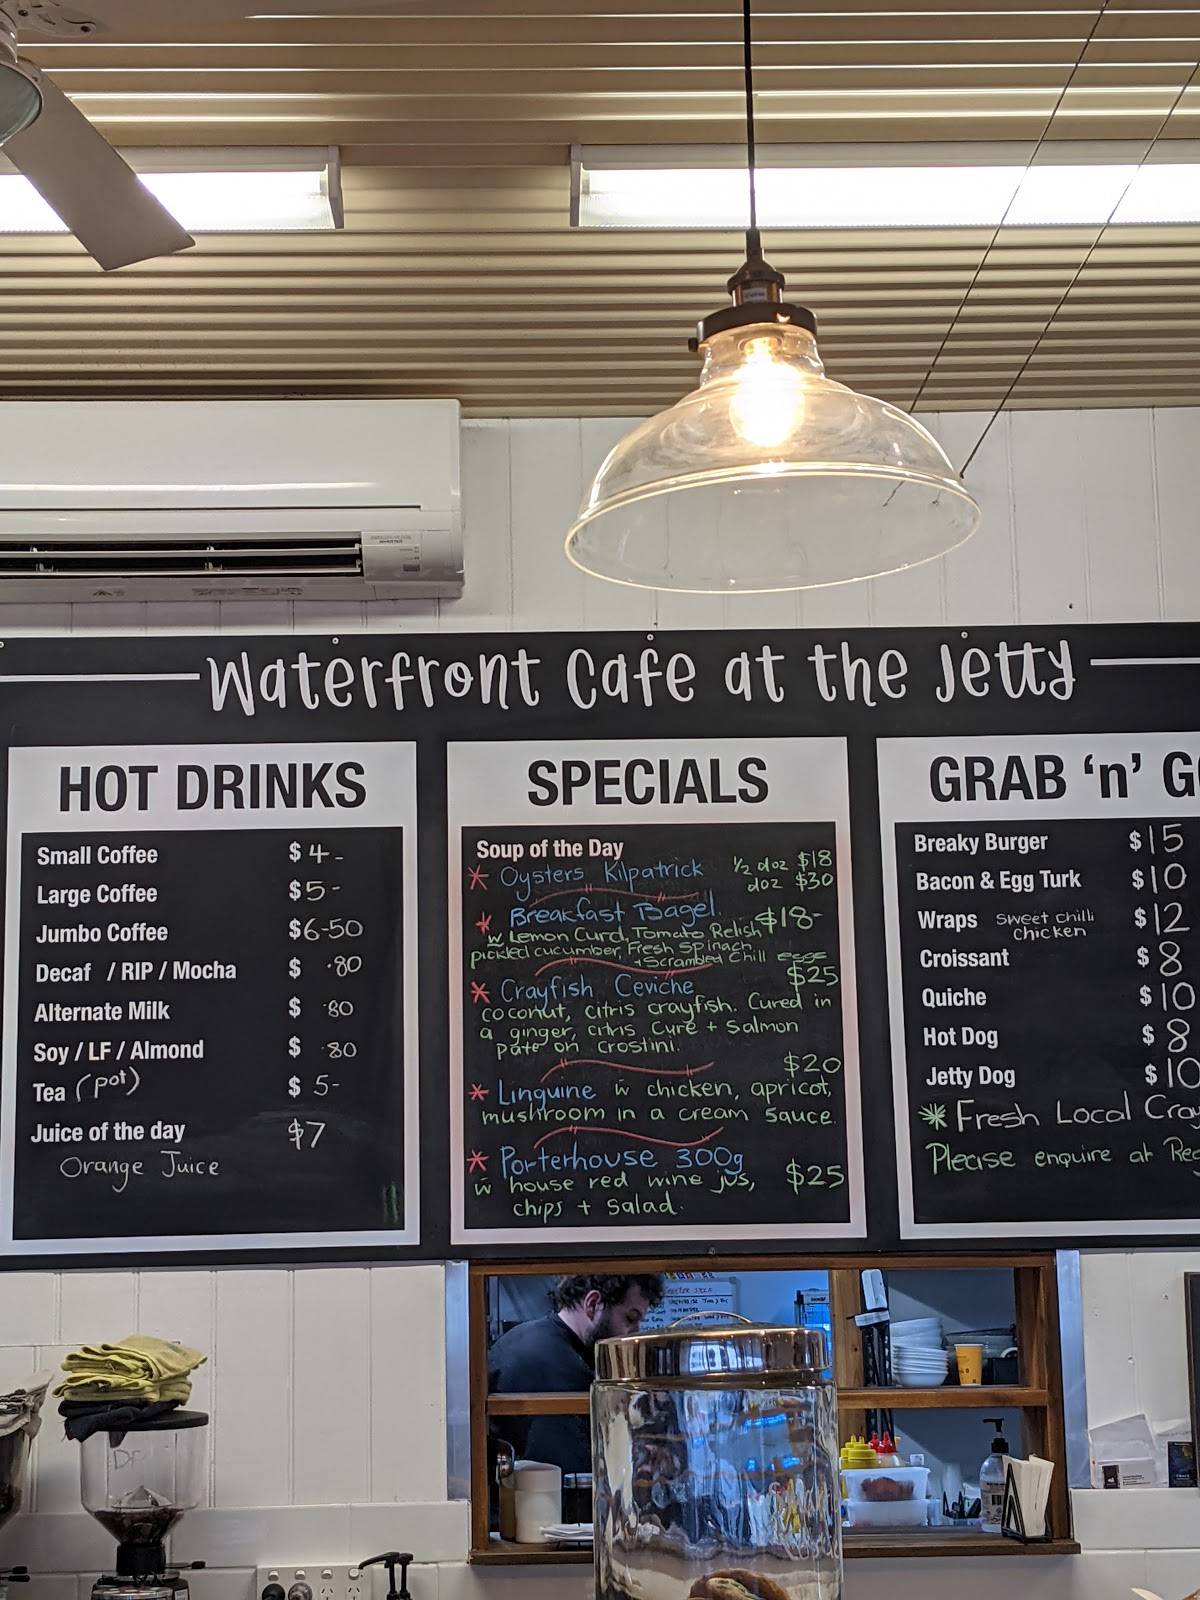 Waterfront Cafe at the Jetty
HOT DRINKS
Small Coffee $4-
Large Coffee $5-
Jumbo Coffee $6-50
Decaf / RIP / Mocha $ .80
Alternate Milk $ .80
Soy / LF / Almond $ .80
Tea (pot) $ 5-
Juice of the day $7
Orange Juice
SPECIALS
Soup of the Day
* Oysters Kilpatrick ½ doz $18
doz $30
* Breakfast Bagel $18-
w Lemon Curd, Tomato Relish
pickled cucumber, Fresh Spinach,
+ Scrambled Chill eggs
$25
* Crayfish Ceviche
coconut, citris crayfish. Cured in
a ginger, citris cure + Salmon
Pate on crostini.
$20
* Linguine w chicken, apricot,
mushroom in a cream sauce.
* Porterhouse 300g
w house red wine jus, $25
chips + Salad.
GRAB 'n' G
Breaky Burger $15
Bacon & Egg Turk $10
Wraps sweet chilli chicken $12
Croissant $8
Quiche $10
Hot Dog $8
Jetty Dog $10
* Fresh Local Cray
Please enquire at